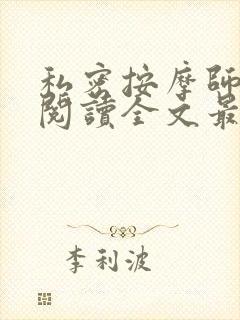 私密按摩師
閱讀全文最
李利波